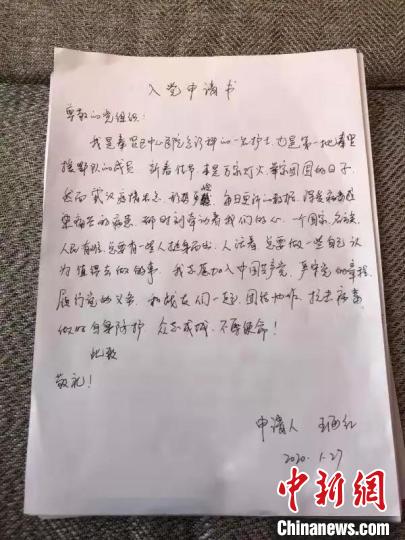 入党申请书
尊敬的党组织:
我是秦皇岛中心医院急诊科的一名护士,也是第一批秦皇
援鄂队的成员 新春佳节,本是万家灯火,举家团圆的日子.
然而武汉疫情不止,形势严峻,每日更新的数据,深受病毒感
染痛苦的病患,都时刻牵动着我们的心.一个国家,名族,
人民有难,总要有一些人挺身而出.人活着总要做一些自己认
为值得去做的事.我志愿加入中国共产党,严守党的章程,
履行党的义务,和战友们一起,团结协作,抗击病毒,
做好自身防护,众志成城,不辱使命!
此致
敬礼!
申请人
2020.1.27
中新网
Chinanews.com